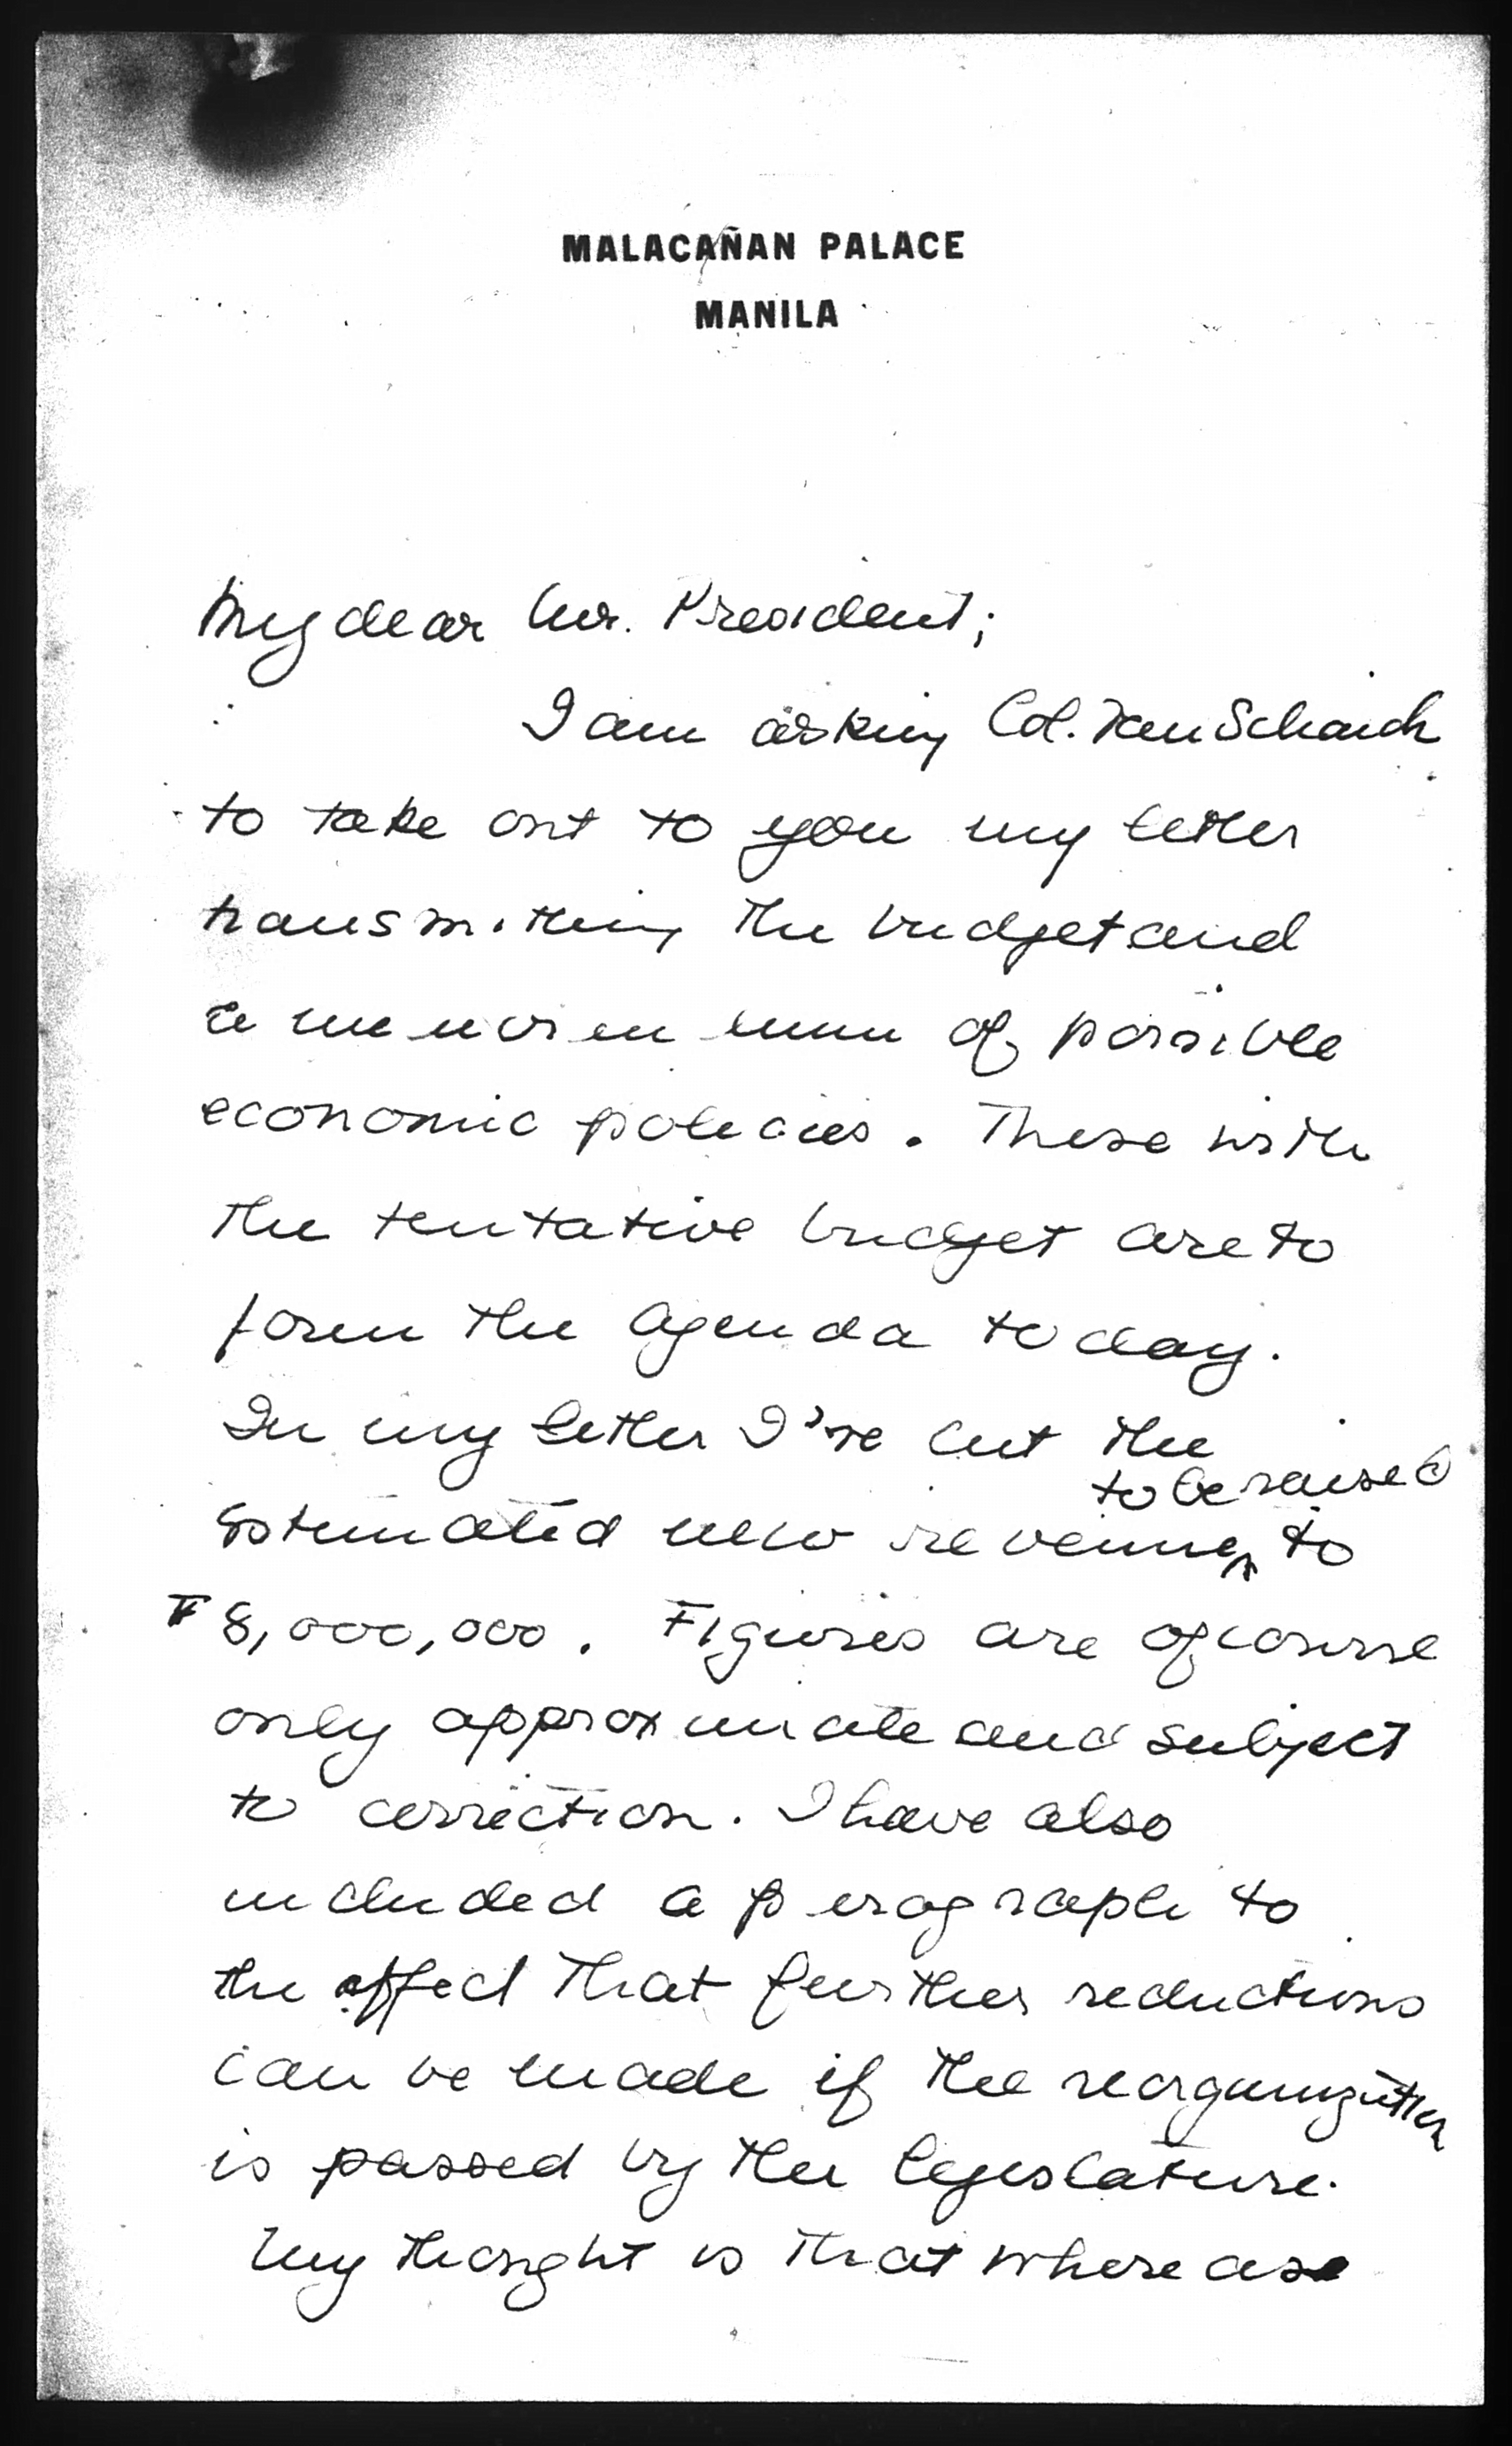 MALACAÑAN PALACE
MANILA
My dear Mr. President;
I am asking Col. Van Schaick
to take out to you my letter
transmitting the budget and
a memorandum of possible
economic policies. These with
the tentative budget are to
form the agenda today.
In my letter I've cut the
to be raised
estimated new revenue ^ to
₱8,000,000. Figures are of course
only approximate and subject
to correction. I have also
included a paragraph to
the effect that further reductions
can be made if the reorganization
is passed by the legislature.
My thought is that whereas